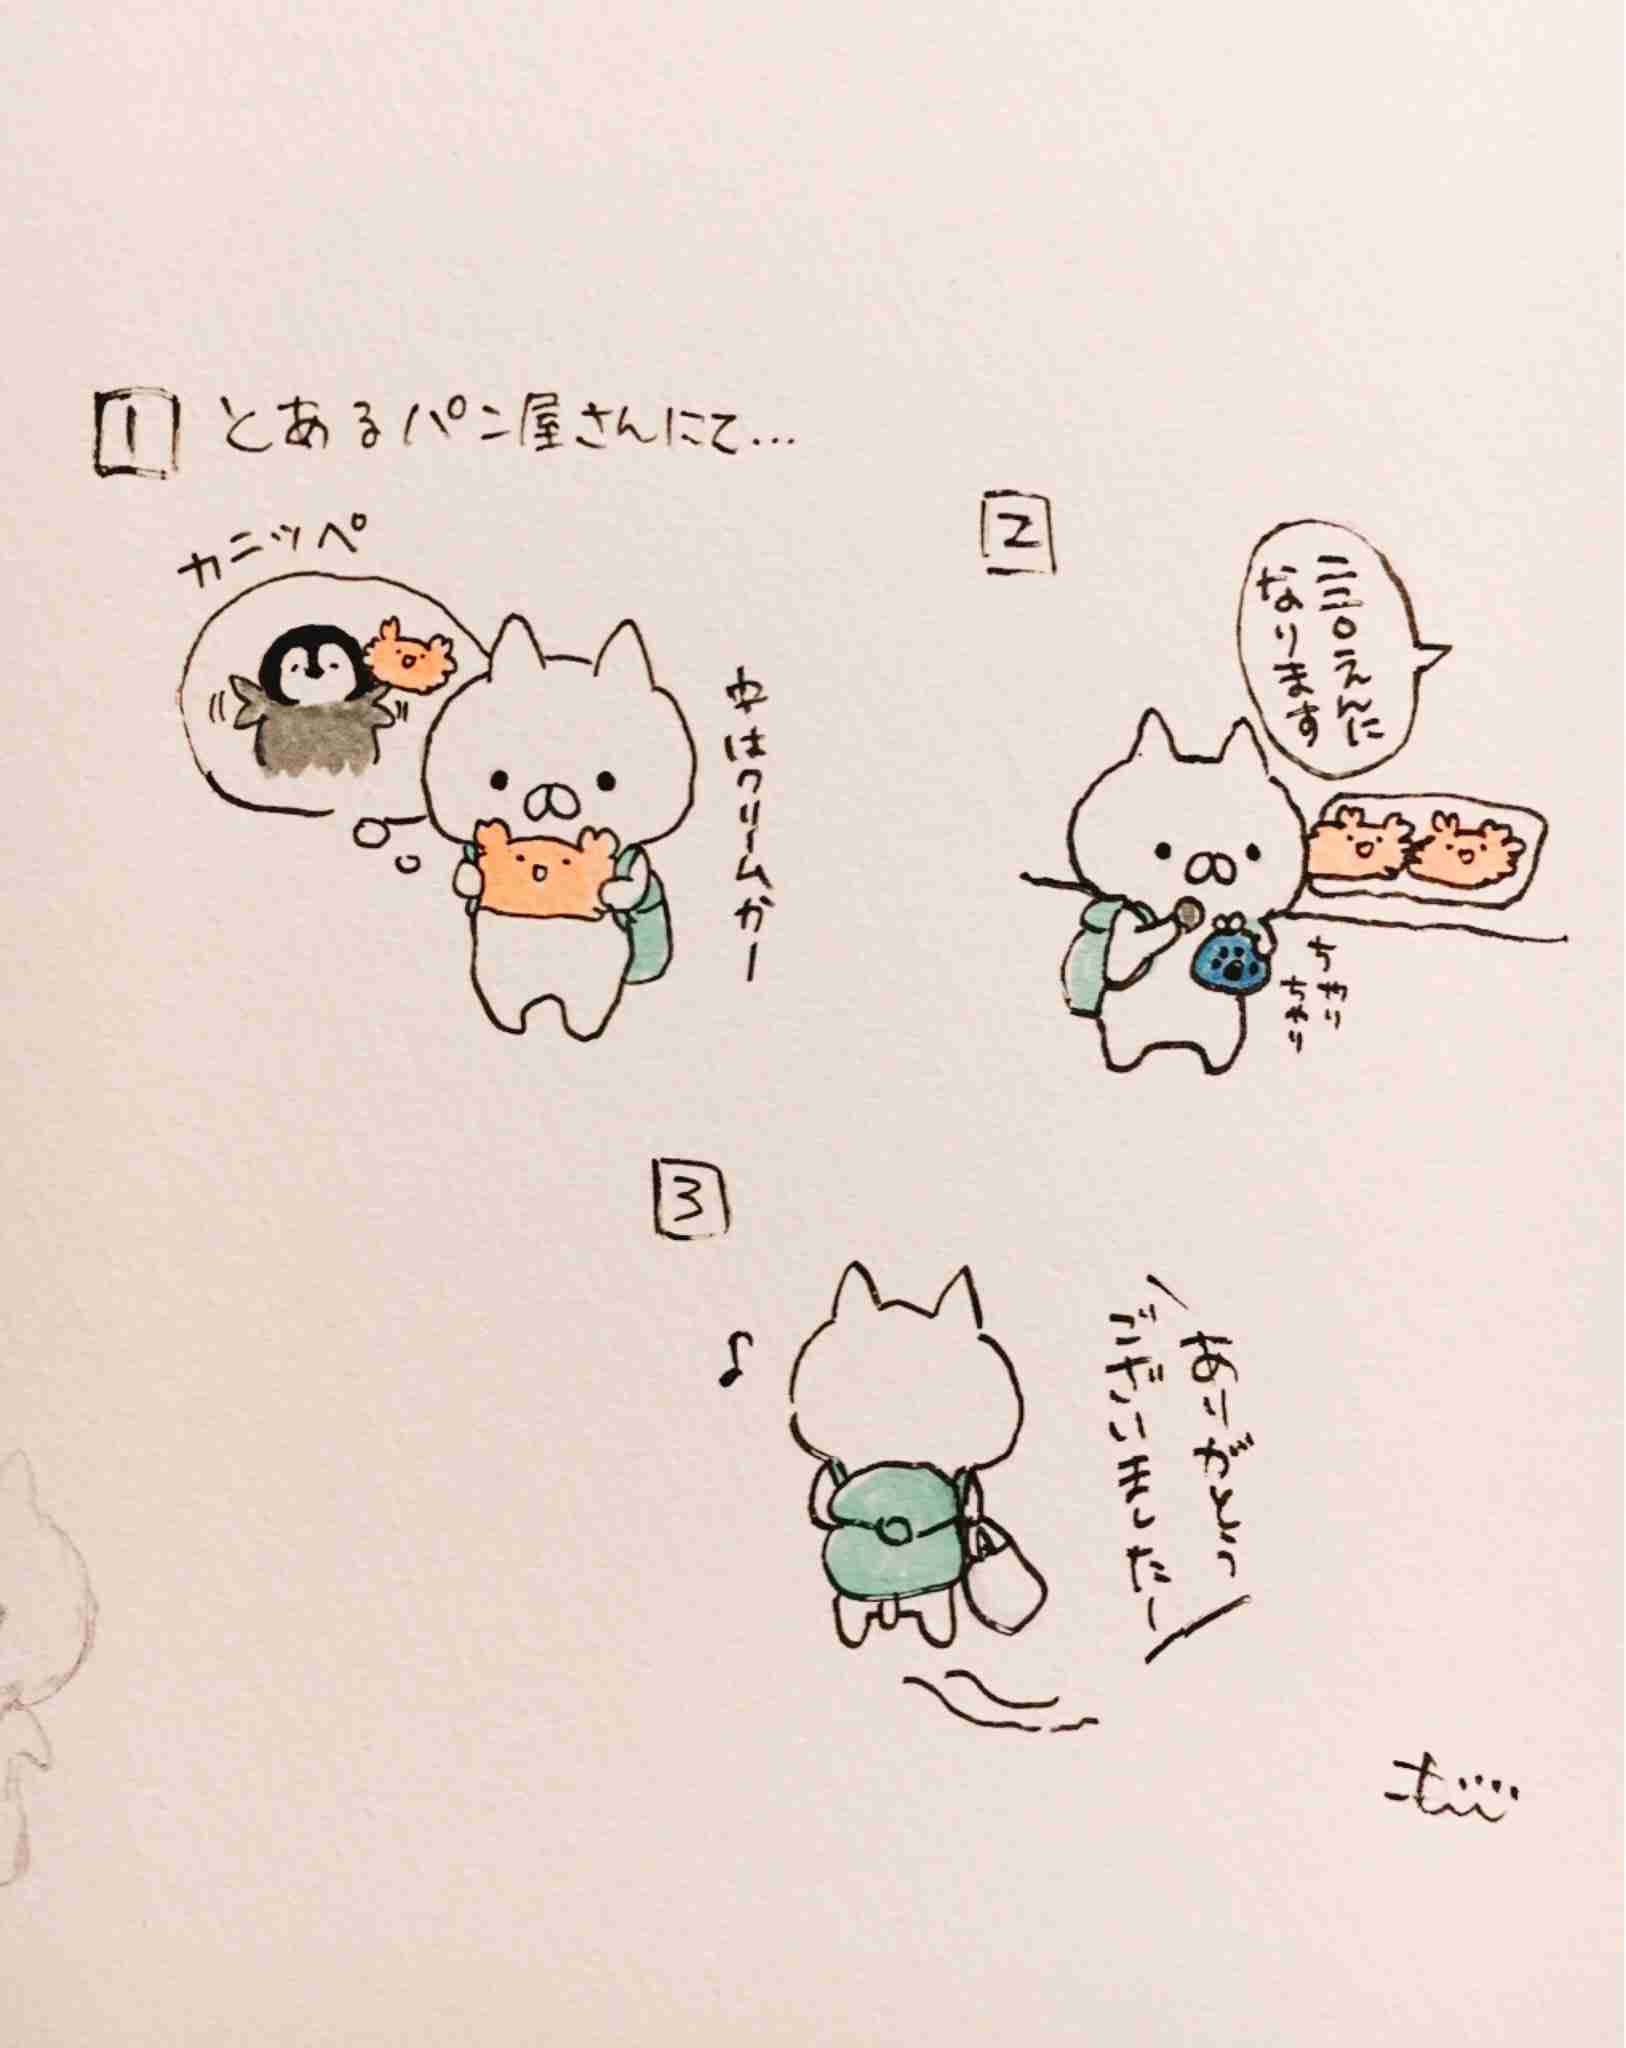 1 とあるパン屋さんにて…
カニッペ
中はクリームかー
2
二三〇えんに
なります
ちゃり
ちゃり
3
ありがとう
ございましたー